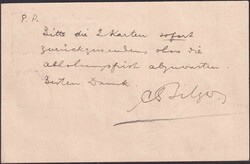 P. P.
Bitte die 2 Karten sofort
zurückzusenden, ohne die
Abholungsfrist abzuwarten.
Besten Dank.